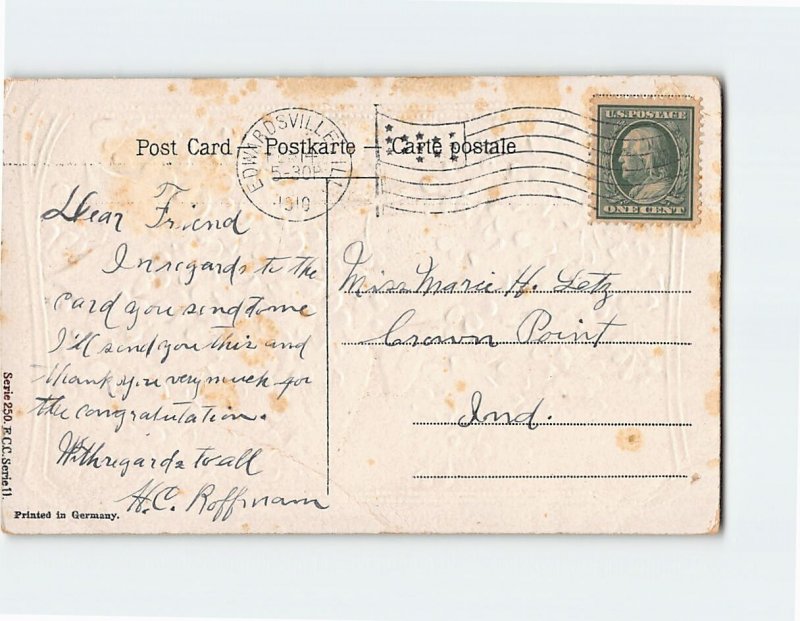 Post Card — Postkarte — Carte postale
EDWARDSVILLE, ILL.
5-30P
1910
U.S. POSTAGE
ONE CENT
Dear Friend
In regards to the
card you send to me
I'll send you this and
thank you very much for
the congratutation.
With regards to all
H. C. Roffmann
Miss Marie H. Letz
Crown Point
Ind.
Serie 250. E.C.C. Serie 11.
Printed in Germany.